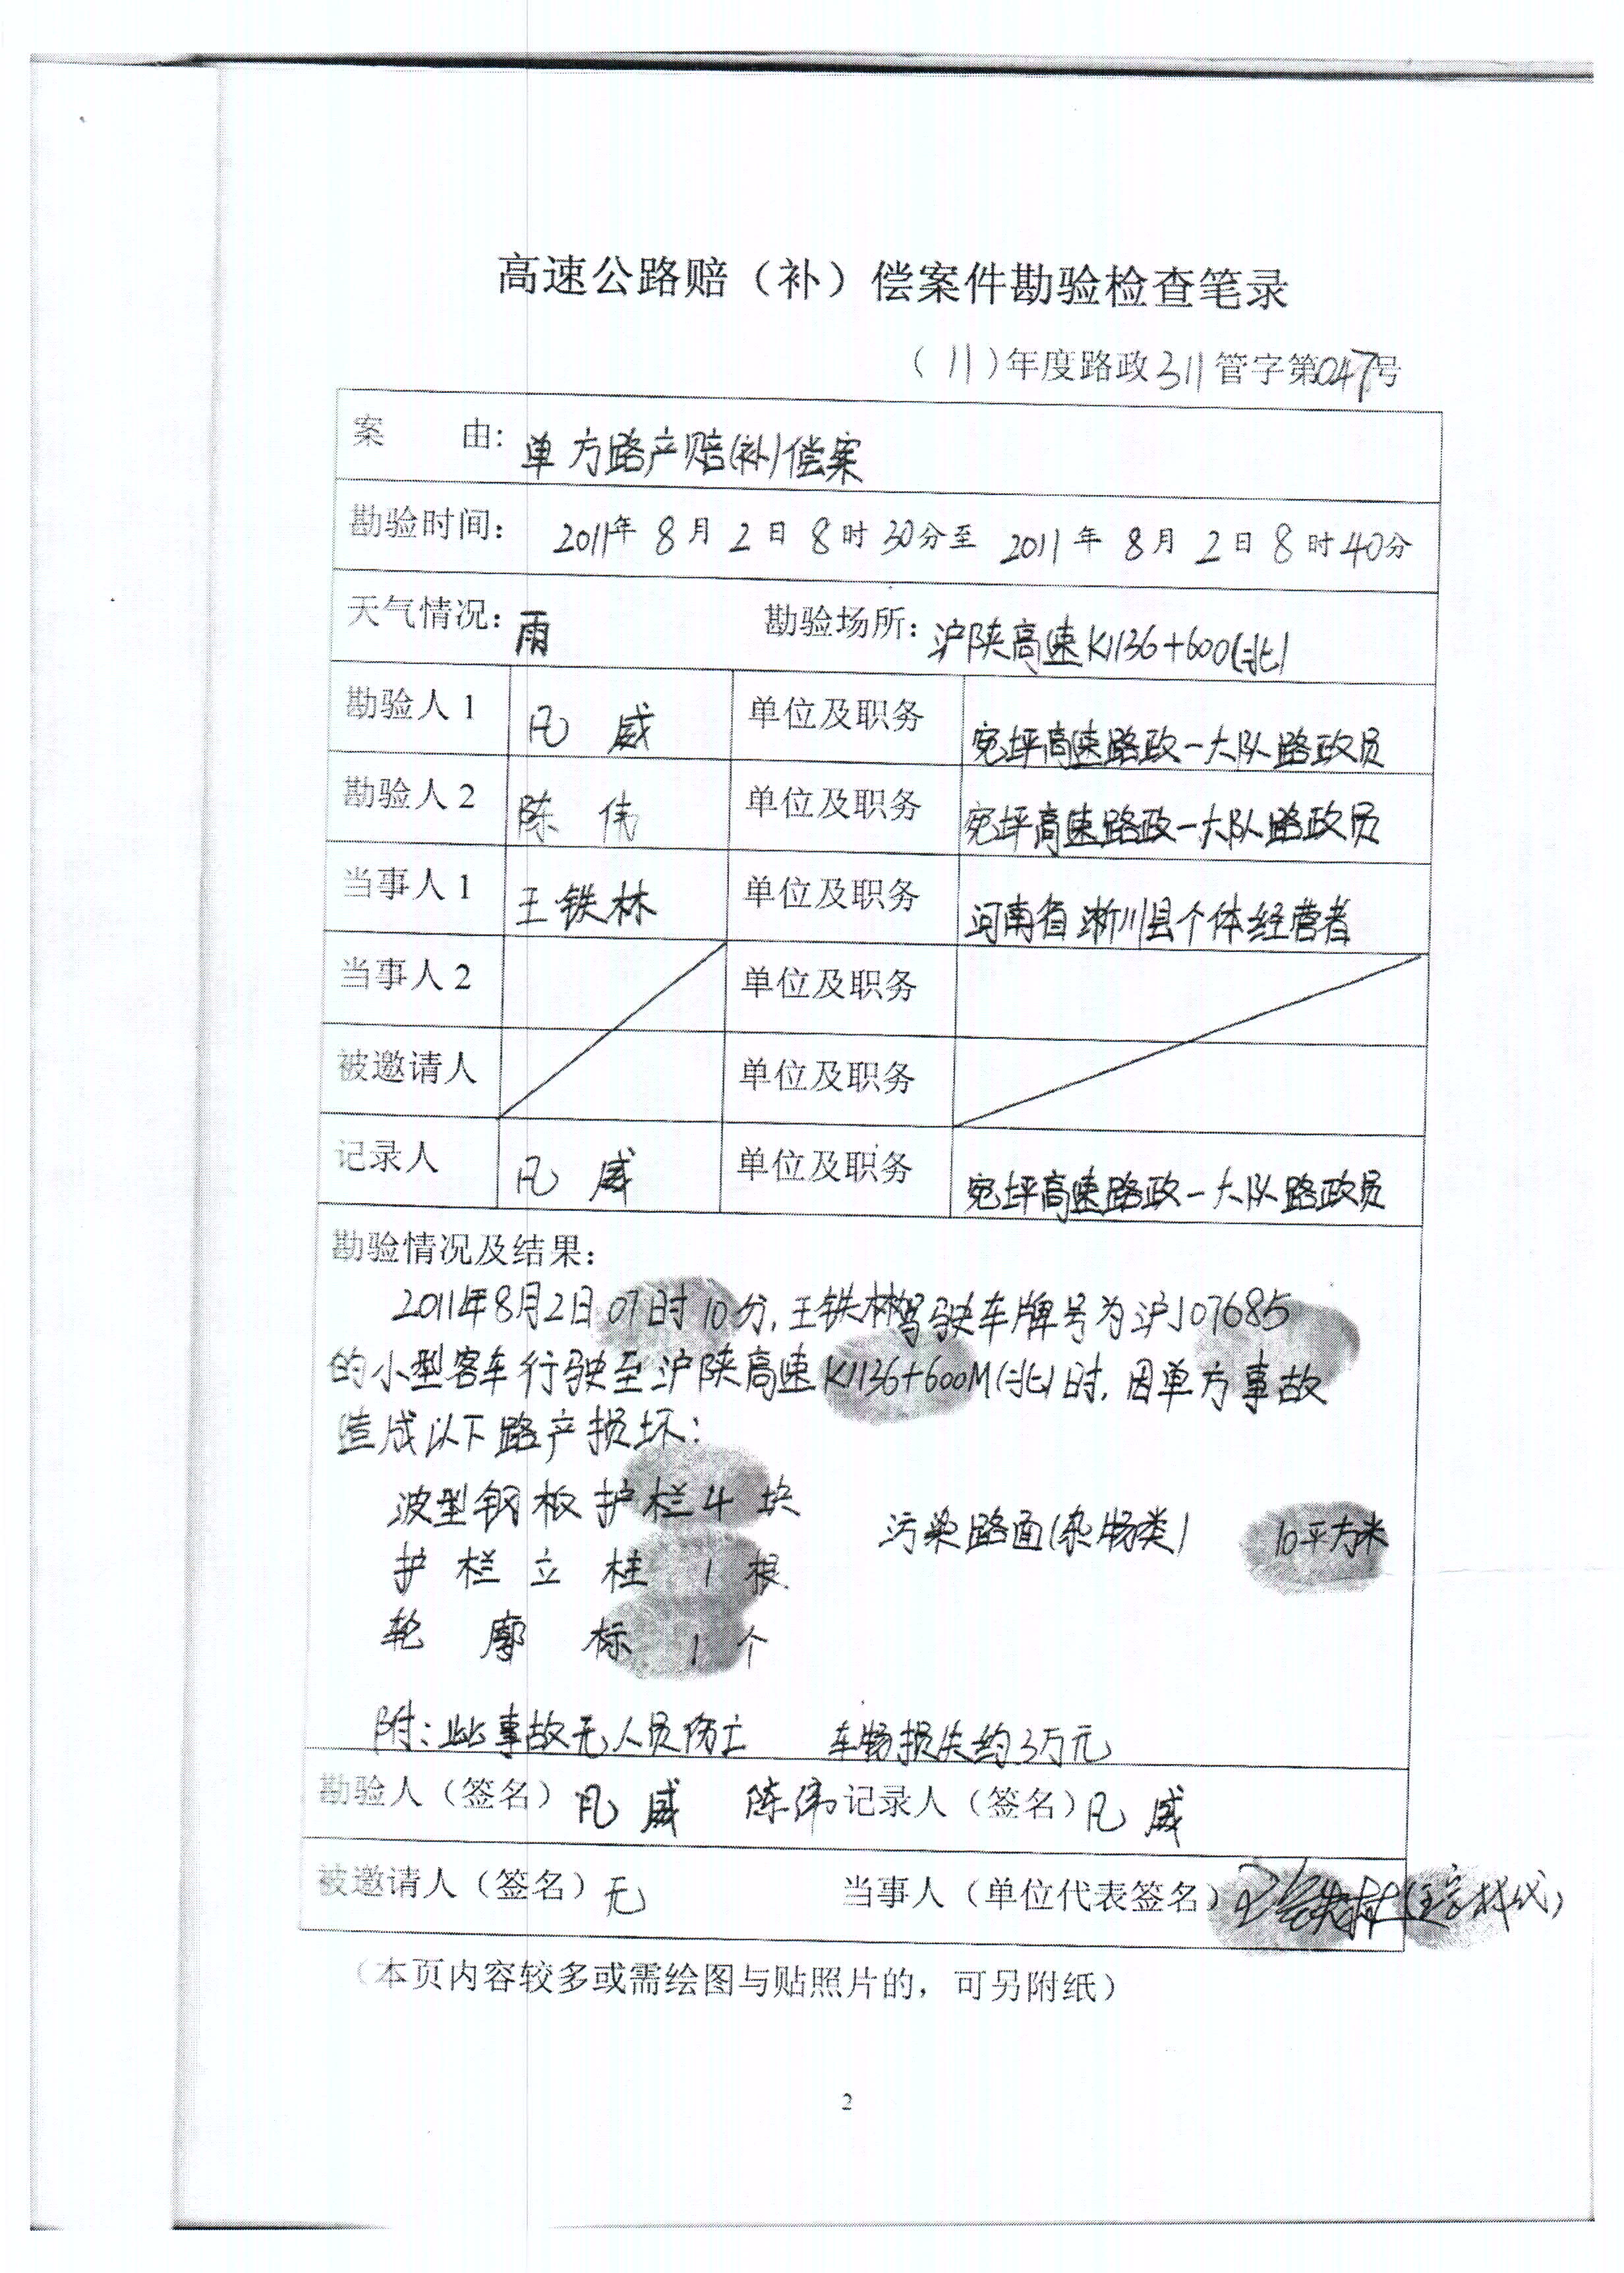 高速公路赔（补）偿案件勘验检查笔录
（11）年度路政311管字第047号
案 由：单方路产赔(补)偿案
勘验时间： 2011年8月2日8时30分至2011年8月2日8时40分
天气情况：雨 勘验场所：沪陕高速K1136+600(北)
勘验人1 凡威 单位及职务 宛坪高速路政一大队路政员
勘验人2 陈伟 单位及职务 宛坪高速路政一大队路政员
当事人1 王铁林 单位及职务 河南省淅川县个体经营者
当事人2 单位及职务
被邀请人 单位及职务
记录人 凡威 单位及职务 宛坪高速路政一大队路政员
勘验情况及结果：
2011年8月2日07时10分,王铁林驾驶车牌号为沪J07685
的小型客车行驶至沪陕高速K1136+600M(北)时,因单方事故
造成以下路产损坏:
波型钢板护栏4块 污染路面(杂物类) 10平方米
护栏立柱1根
轮廓标1个
附:此事故无人员伤亡 车物损失约3万元
勘验人（签名）凡威 陈伟 记录人（签名）凡威
被邀请人（签名）无 当事人（单位代表签名）
（本页内容较多或需绘图与贴照片的，可另附纸）
2